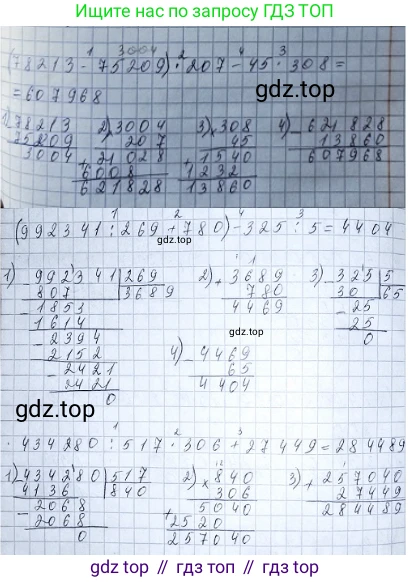 Ищите по запросу ГДЗ ТОП
1 3004 2 4 3
(78213 - 75209) · 207 - 45 · 308 =
= 607968
gdz.top
1) 78213 2) 3004 3) 308 4) 621828
75209 207 45 13860
3004 21028 1540 607968
6008 1232
621828 13860
1 2 4 3
(992341 : 269 + 780) - 325 : 5 = 4404
gdz.top
1) 992341 269 2) 3689 3) 325 5
807 3689 780 30 65
1853 4469 25
1614 25
2394 0
2152 4) 4469
2421 65
2421 4404
0
gdz.top
1 2 3
434280 : 517 · 306 + 27449 = 284489
1) 434280 517 2) 840 3) 257040
4136 840 306 27449
2068 5040 284489
2068 2520
0 257040
gdz.top // gdz.top // gdz.top